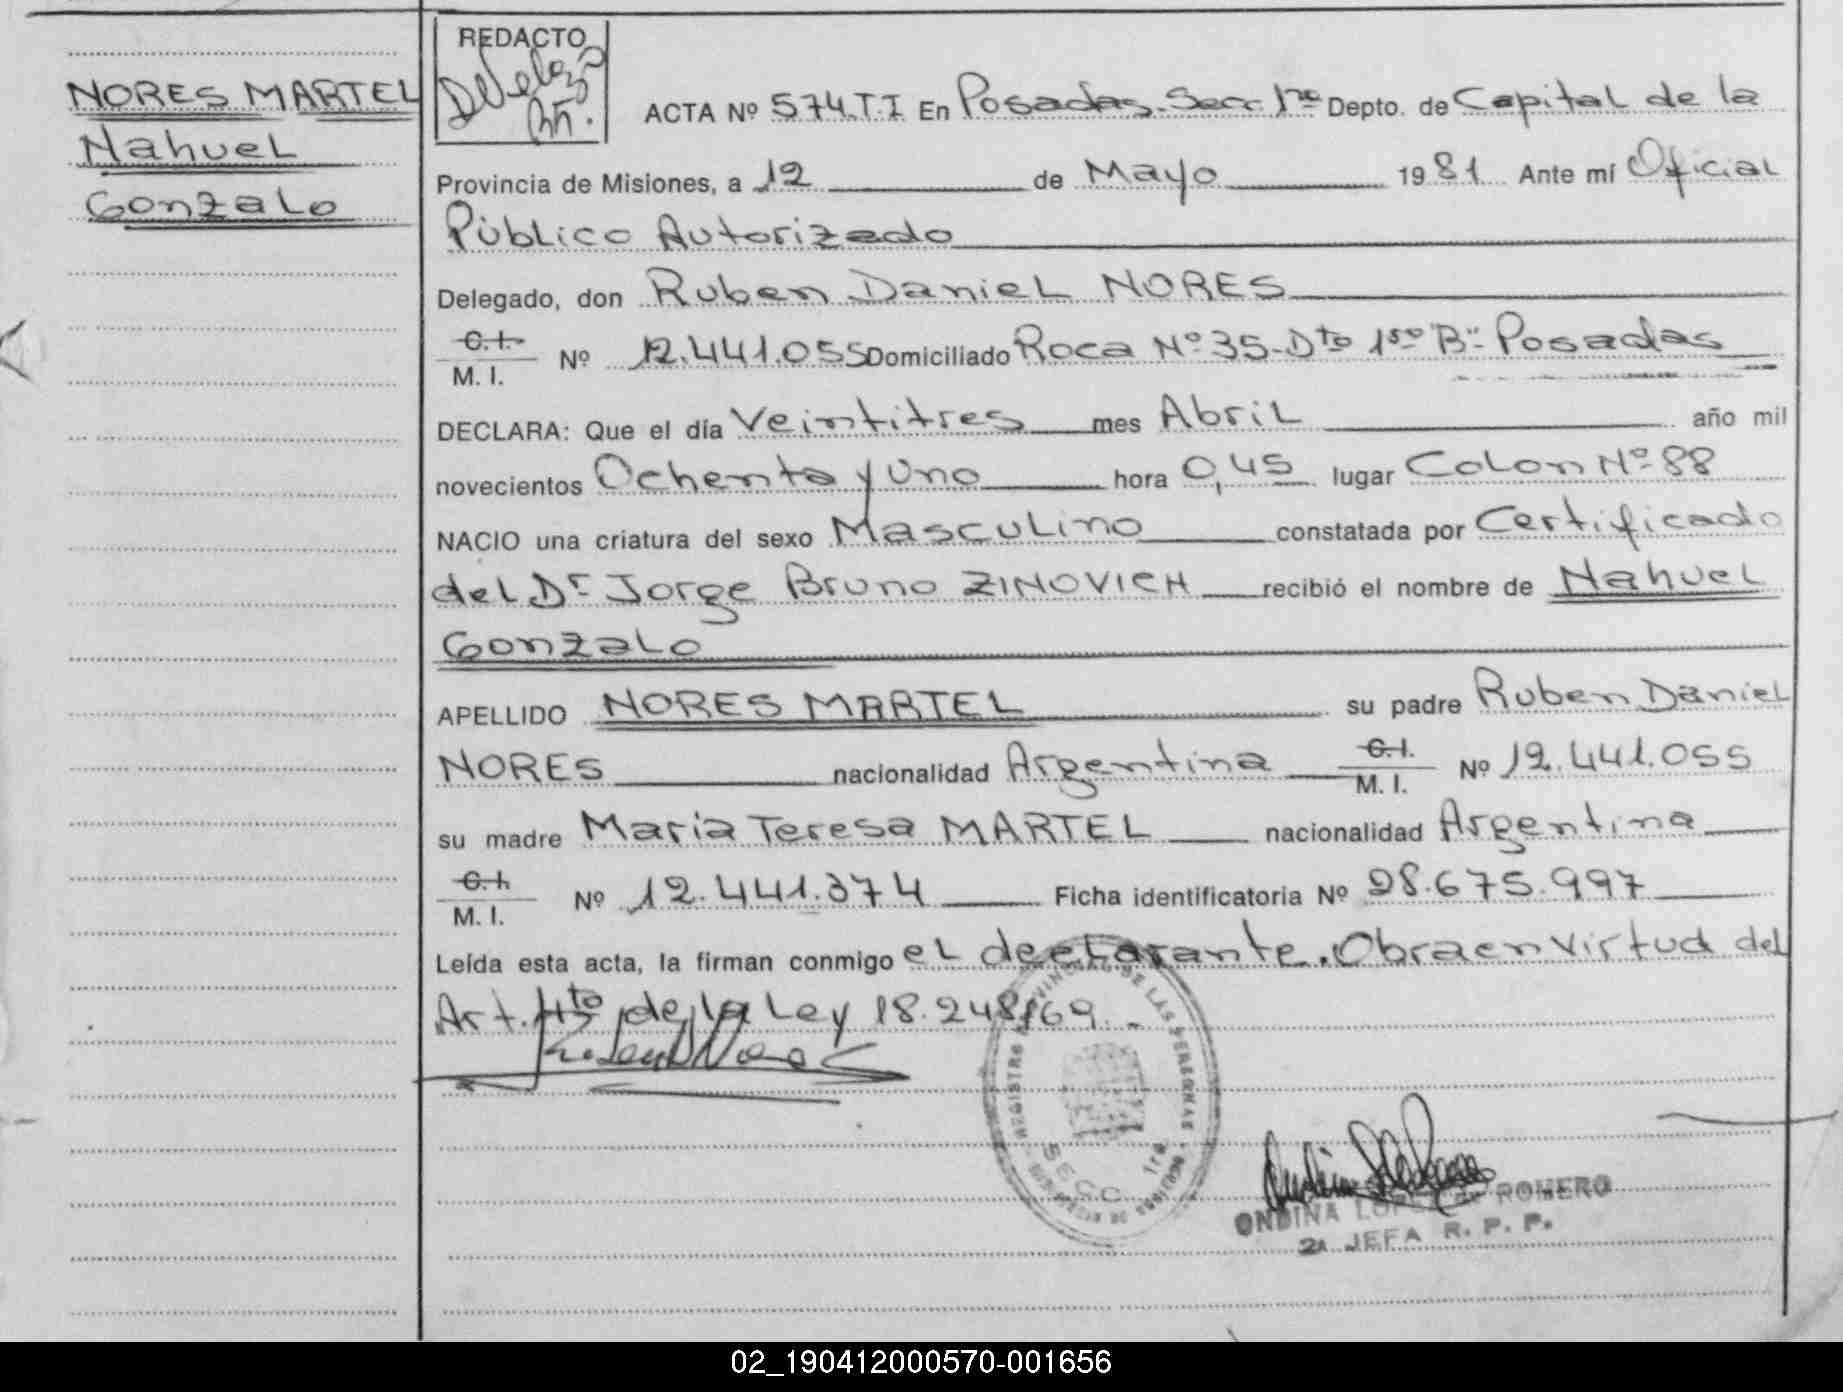 NORES MARTEL
Nahuel
Gonzalo
REDACTO
ACTA Nº 574.T.I En Posadas. Secc 1ra Depto. de Capital de la
Provincia de Misiones, a 12 de Mayo 1981 Ante mí Oficial
Público Autorizado
Delegado, don Ruben Daniel NORES
C.I.
M. I. Nº 12.441.055 Domiciliado Roca Nº 35-Dto 1ro "B"- Posadas
DECLARA: Que el día Veintitres mes Abril año mil
novecientos Ochenta y Uno hora 0,45 lugar Colon Nº 88
NACIO una criatura del sexo Masculino constatada por Certificado
del Dr Jorge Bruno ZINOVICH recibió el nombre de Nahuel
Gonzalo
APELLIDO NORES MARTEL su padre Ruben Daniel
NORES nacionalidad Argentina C.I. M. I. Nº 12.441.055
su madre Maria Teresa MARTEL nacionalidad Argentina
C.I.
M. I. Nº 12.441.374 Ficha identificatoria Nº 28.675.997
Leída esta acta, la firman conmigo el declarante. Obra en virtud del
Art. 4to de la Ley 18.248/69.
REGISTRO PROVINCIAL DE LAS PERSONAS
SECC. 1ra
ONDINA LOPEZ de ROMERO
2a JEFA R. P. P.
02_190412000570-001656